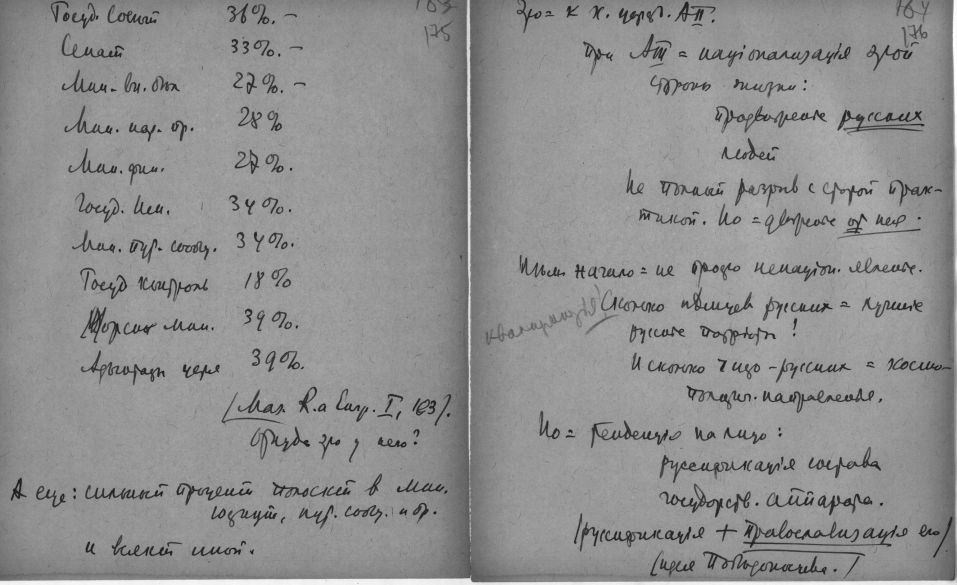 163
175
Госуд. Совѣт 36%. –
Сенат 33%. –
Мин. вн. дѣл 27%. –
Мин. нар. пр. 28%
Мин. фин. 27%.
Госуд. Им. 34%.
Мин. пут. сообщ. 34%.
Госуд контроль 18%
Морск. Мин. 39%.
Адъютанты царя 39%.
(Mas. R. a Eur. I, 163).
Откуда это у него?
А еще: сильный процент полоскет в Мин.
юстиціи, пут. сообщ. и др.
и всякой иной.
164
176
Это = к к. царств. АII.
При АIII = націонализація этой
стороны жизни:
продвиженіе русских
людей
Не полный разрыв с старой прак-
тикой. Но = движеніе от нея.
Ннъм. начало = не просто ненаціон. явленіе.
Сколько нѣмцев русских = лучшіе
русскіе патріоты!
И сколько чисто-русских = космо-
полит. настроенія.
Но = тенденція на лицо:
руссификація состава
государств. аппарата.
(руссификація + православизація его)
(идея Побѣдоносцева.)